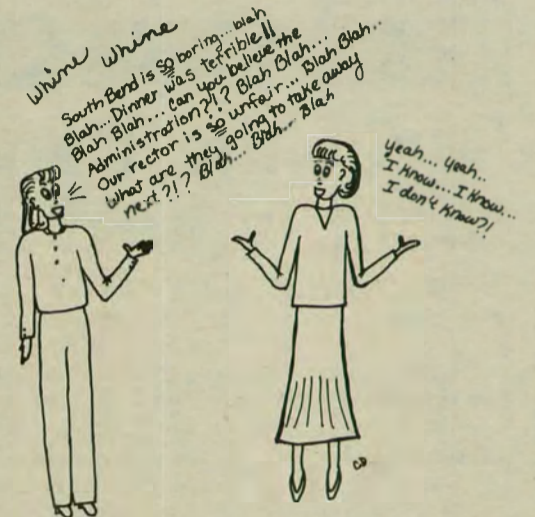 Whine Whine
South Bend is so boring...blah
Blah...Dinner was terrible!!
Blah Blah... can you believe the
Administration?!? Blah Blah...
Our rector is so unfair... Blah Blah..
What are they going to take away
next?!? Blah... Blah... Blah
Yeah... Yeah..
I Know... I Know...
I don't Know?!
CD